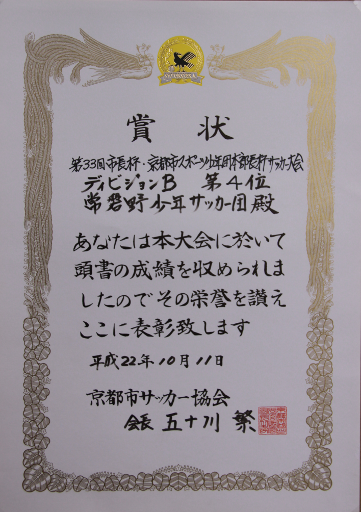 賞状
第33回市長杯・京都市スポーツ少年団本部長杯サッカー大会
ディビジョンB 第4位
常磐野少年サッカー団殿
あなたは本大会に於いて
頭書の成績を収められま
したのでその栄誉を讃え
ここに表彰致します
平成22年10月11日
京都市サッカー協会
会長 五十川 繁